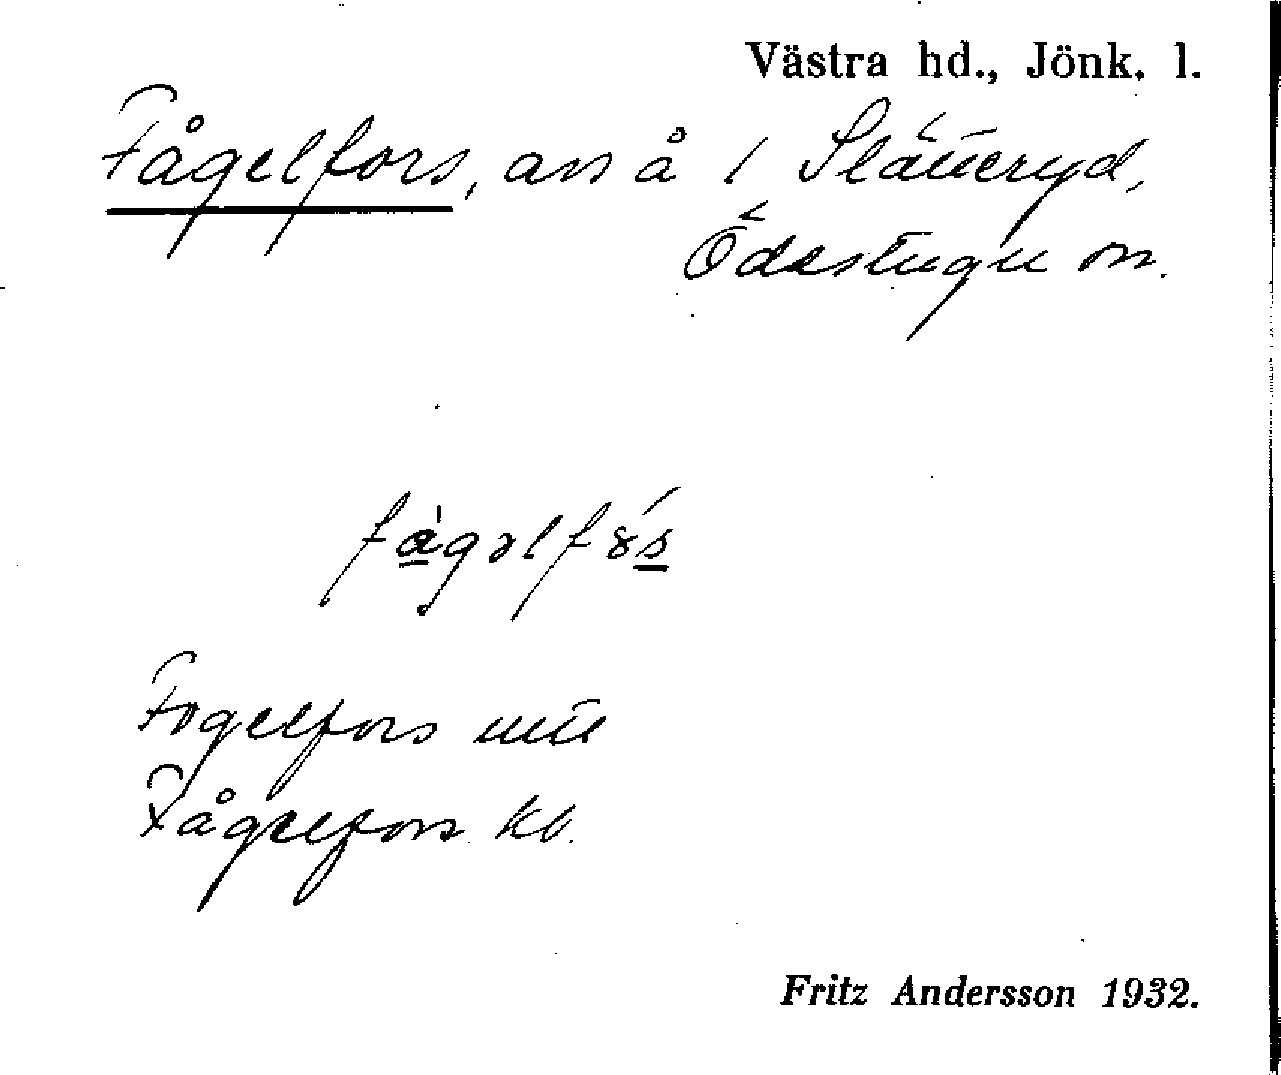 Västra hd., Jönk. l.
Fågelfors, avs å 1 Slätteryd,
Ödestugu sn.
fågəlfɷs
Fogelfors
Fågelfors kb.
Fritz Andersson 1932.